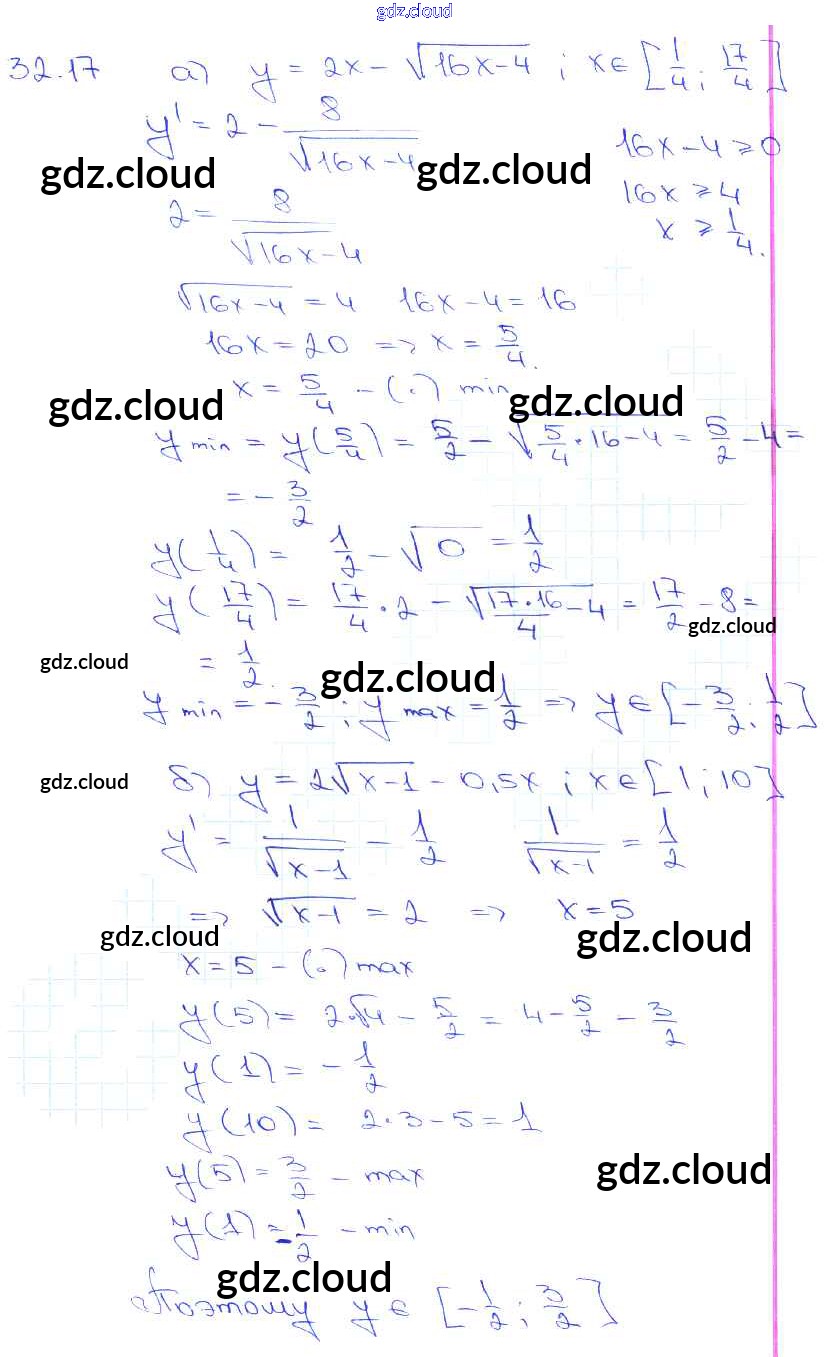 gdz.cloud
32.17 а) y = 2x − √(16x−4) ; x∈[1/4 ; 17/4]
y' = 2 − 8/√(16x−4)
16x−4 ≥ 0
gdz.cloud gdz.cloud
16x ≥ 4
2 = 8/√(16x−4)
x ≥ 1/4.
√(16x−4) = 4 16x−4 = 16
16x = 20 => x = 5/4.
x = 5/4 − (·) min
gdz.cloud gdz.cloud
y min = y(5/4) = 5/2 − √(5/4·16−4) = 5/2 − 4 =
= − 3/2
y(1/4) = 1/2 − √0 = 1/2
y(17/4) = 17/4 · 2 − √(17·16/4 − 4) = 17/2 − 8 =
gdz.cloud
gdz.cloud = 1/2. gdz.cloud
y min = − 3/2 ; y max = 1/2 => y∈[−3/2 ; 1/2]
gdz.cloud б) y = 2√(x−1) − 0,5x ; x∈[1 ; 10]
y' = 1/√(x−1) − 1/2 1/√(x−1) = 1/2
=> √(x−1) = 2 => x = 5
gdz.cloud gdz.cloud
x = 5 − (·) max
y(5) = 2·√4 − 5/2 = 4 − 5/2 − 3/2
y(1) = − 1/2
y(10) = 2·3 − 5 = 1
y(5) = 3/2 − max gdz.cloud
y(1) = − 1/2 − min
gdz.cloud
Поэтому y∈ [−1/2 ; 3/2]